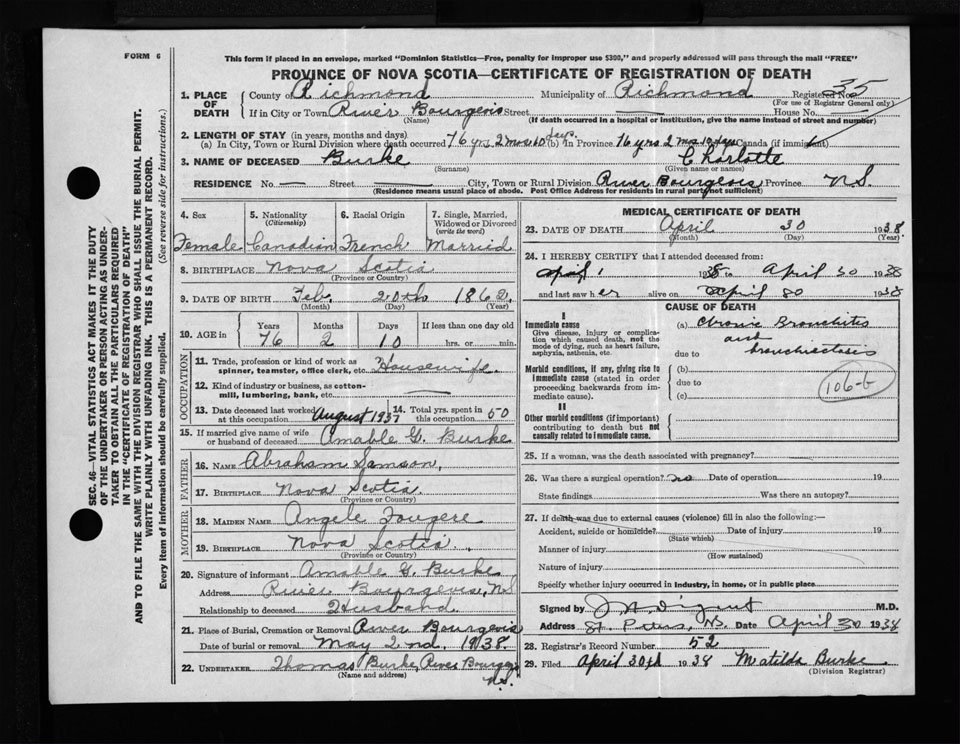 FORM 6
This form if placed in an envelope, marked "Dominion Statistics—Free, penalty for improper use $300," and properly addressed will pass through the mail "FREE"
PROVINCE OF NOVA SCOTIA—CERTIFICATE OF REGISTRATION OF DEATH
SEC. 46—VITAL STATISTICS ACT MAKES IT THE DUTY
OF THE UNDERTAKER OR PERSON ACTING AS UNDER-
TAKER TO OBTAIN ALL THE PARTICULARS REQUIRED
IN THE "CERTIFICATE OF REGISTRATION OF DEATH"
AND TO FILE THE SAME WITH THE DIVISION REGISTRAR WHO SHALL ISSUE THE BURIAL PERMIT.
WRITE PLAINLY WITH UNFADING INK. THIS IS A PERMANENT RECORD.
Every item of information should be carefully supplied. (See reverse side for instructions.)
1. PLACE OF DEATH County of Richmond Municipality of Richmond Registered No. 35
(For use of Registrar General only)
If in City or Town River Bourgeois Street — House No. —
(Name) (If death occurred in a hospital or institution, give the name instead of street and number)
2. LENGTH OF STAY (in years, months and days)
(a) In City, Town or Rural Division where death occurred 76 yrs 2 mos 10 days (b) In Province 76 yrs 2 mos 10 days Canada (if immigrant)
3. NAME OF DECEASED Burke Charlotte
(Surname) (Given name or names)
RESIDENCE No. — Street — City, Town or Rural Division River Bourgeois Province N.S.
(Residence means usual place of abode. Post Office Address for residents in rural parts not sufficient)
4. Sex 5. Nationality (Citizenship) 6. Racial Origin 7. Single, Married, Widowed or Divorced (write the word)
Female Canadian French Married
8. BIRTHPLACE Nova Scotia
(Province or Country)
9. DATE OF BIRTH Feb. 20th 1862
(Month) (Day) (Year)
10. AGE in Years Months Days If less than one day old
76 2 10 hrs. or min.
OCCUPATION
11. Trade, profession or kind of work as
spinner, teamster, office clerk, etc. Housewife
12. Kind of industry or business, as cotton-
mill, lumbering, bank, etc. —
13. Date deceased last worked at this occupation August 1937 14. Total yrs. spent in this occupation 50
15. If married give name of wife
or husband of deceased Amable G. Burke
FATHER
16. NAME Abraham Samson,
17. BIRTHPLACE Nova Scotia
(Province or Country)
MOTHER
18. MAIDEN NAME Angele Fougere
19. BIRTHPLACE Nova Scotia
(Province or Country)
20. Signature of informant Amable G. Burke
Address River Bourgeois, N.S
Relationship to deceased Husband
21. Place of Burial, Cremation or Removal River Bourgeois
Date of burial or removal May 2nd. 1938.
22. UNDERTAKER Thomas Burke, River Bourgeois
N.S.
(Name and address)
MEDICAL CERTIFICATE OF DEATH
23. DATE OF DEATH April 30 1938
(Month) (Day) (Year)
24. I HEREBY CERTIFY that I attended deceased from:
April 1 1938 to April 30 1938
and last saw her alive on April 30 1938
CAUSE OF DEATH
I
Immediate cause
Give disease, injury or complica-
tion which caused death, not the
mode of dying, such as heart failure,
asphyxia, asthenia, etc.
(a) Chronic Bronchitis
and
due to bronchiectasis
Morbid conditions, if any, giving rise to
immediate cause (stated in order
proceeding backwards from im-
mediate cause).
(b)
due to
(c)
106-b
II
Other morbid conditions (if important)
contributing to death but not
causally related to immediate cause.
25. If a woman, was the death associated with pregnancy?
26. Was there a surgical operation? no Date of operation 19
State findings Was there an autopsy?
27. If death was due to external causes (violence) fill in also the following:—
Accident, suicide or homicide? Date of injury 19
(State which)
Manner of injury
(How sustained)
Nature of injury
Specify whether injury occurred in industry, in home, or in public place
Signed by M.D.
Address St. Peters, N.S. Date April 30 1938
28. Registrar's Record Number 52
29. Filed April 30th 1938 Matilda Burke
(Division Registrar)